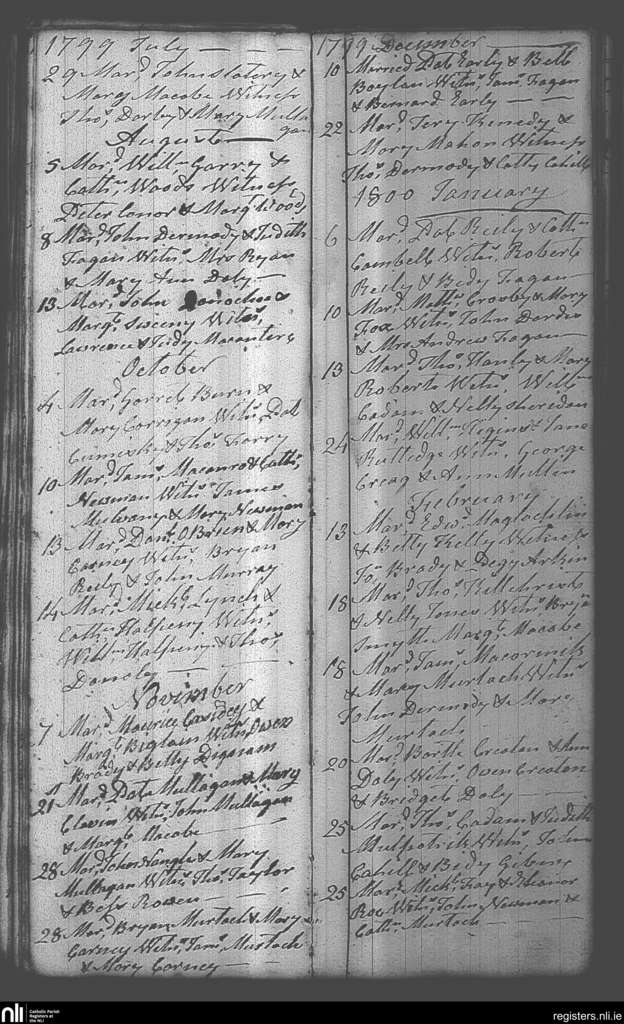 1799 July
29 Mard John Slatery &
Marg Macabe Witness
Thos, Darby & Mary Mulla
gan
August
5 Mard Willm Garrey &
Cathn Woods Witness
Peter Conor & Margt Woods
8 Mard John Dermody & Judith
Fagan Witns Mrs Ryan
& Mary Ann Daly
13 Mard John &
Margt Sweeny Witns,
Lawrence & Judy
October
4 Mard Garret Burn &
Mary Corrigan Witns Pat
Cumisky & Thos Farry
10 Mard Jams & Cathn,
Newman Witns James
Mulvany & Mary Newman
13 Mard Danl O Brien & Mary
Carney Witns Bryan
Reily & John Murray
14 Mard Michl Lynch &
Cathn Halfpeny Witns
Willm Halfpeny & Thos,
November
7 Mard Maurice Cassidey &
Margt Witns Owen
Brady & Betty
21st Mard Patk Mullagan & Mary
Witns John Mullagan
& Margt Macabe
28 Mard John Nangle & Mary
Mullagan Witns Thos Taylor
& Bess Rowen
28 Mard Bryan Murtach & Mary
Carney Witns Jams Murtach
& Mary Carney
1799 December
10 Married Patk Early & Bettb
Boylan Witns Jams Fagan
& Bernard Early
22 Mard Jery Kenedy &
Mary Mahon Witness
Thos Dermody & Catty Cahill
1800 January
6 Mard Patk Reily & Cathn
Cambell Witns, Robert
Reily & Bidy Fagan
10 Mard Mattw Crosby & Mary
Fox Witns John
& Mrs Andrew Fagan
13 Mard Thos Hanly & Mary
Roberts Witns Willm
Cadam & Nelly Sheridan
24 Mard Willm & Jane
Rutledge Witns George
Creag & Ann Mullen
February
13 Mard Edwd
& Betty Kelly Witness
Jo, Brady & Pegy
18 Mard Thos
& Nelly Jones Witns Bryn
Smyth Margt Macabe
18 Mard Jams
& Mary Murtach Witns
John Dermody & Marg
Murtach
20 Mard Barth Creaton & Ann
Daly Witns, Owen Creaton
& Bridget Daly
25 Mard Thos Cadam & Judith
Mulpatrick Witns, John
Cahill & Bidy
25 Mard Michl Fay & Eleanor
Roe Witns John Newman &
Cathn Murtach
nli
Catholic Parish
Registers at
the NLI
registers.nli.ie